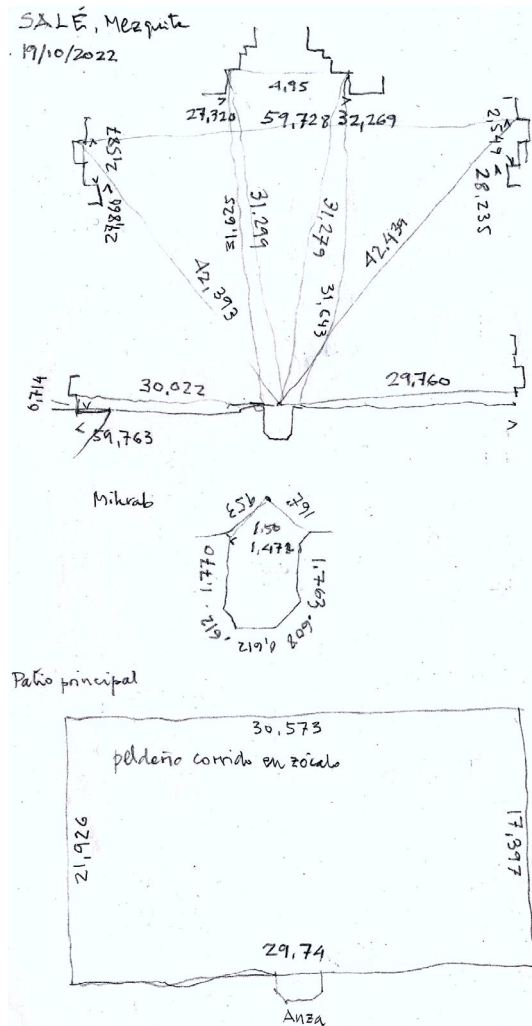 SALÉ, Mezquita
19/10/2022
4,95
27,320
59,728
32,269
2,587
27,860
2,549
28,235
31,299
31,279
31,643
42,393
42.439
30,022
29,760
0,714
59,763
Mihrab
953
1.50
1,472
1.770
1,763
.612
0,612
.608
Patio principal
30,573
peldaño corrido en zócalo
21,926
17,397
29,74
Anza